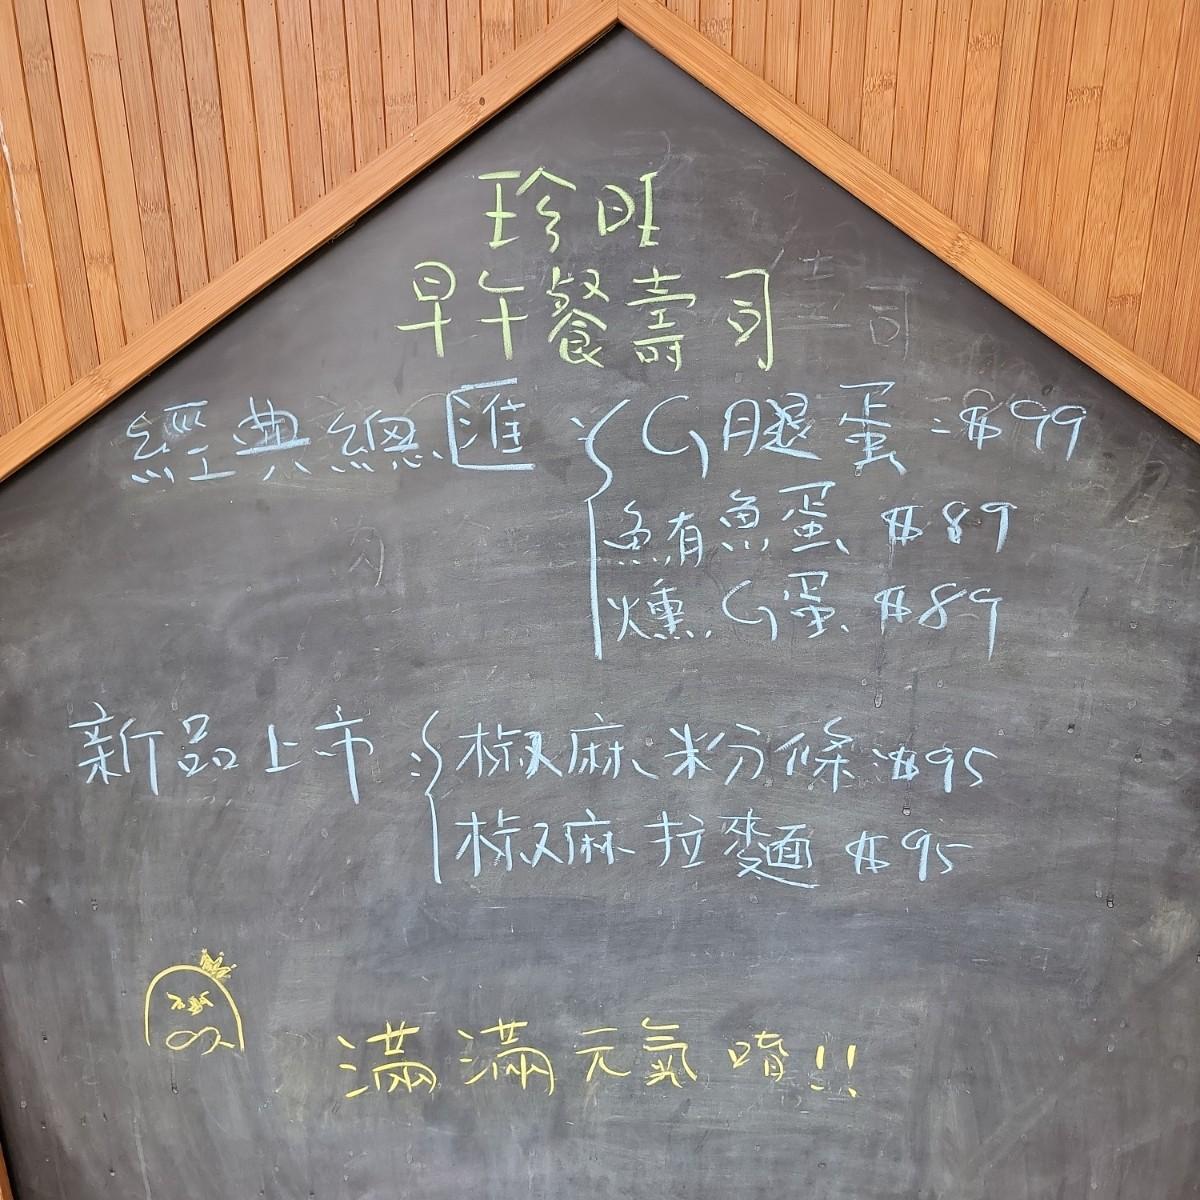 珍旺
早午餐壽司
經典總匯：G腿蛋：$99
鮪魚蛋 $89
燻G蛋 $89
新品上市：椒麻粉條：$95
椒麻拉麵 $95
滿滿元氣唷!!